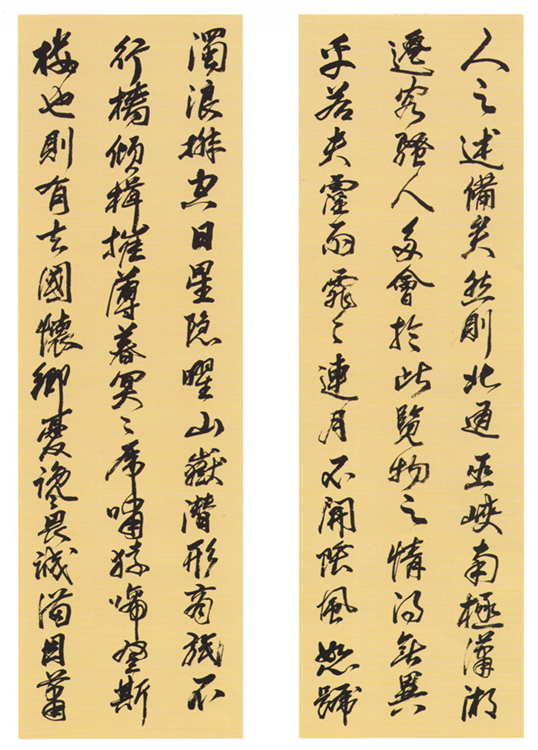 人之述備矣然則北通巫峽南極瀟湘
遷客騷人多會於此覽物之情得無異
乎若夫霪雨霏〻連月不開陰風怒號
濁浪排空日星隱曜山嶽潛形商旅不
行檣傾楫摧薄暮冥〻虎嘯猿啼登斯
樓也則有去國懷鄉憂讒畏譏滿目蕭